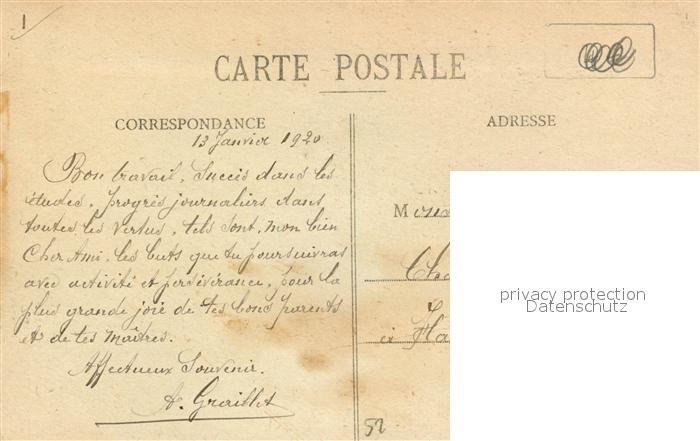 1
CARTE POSTALE
CORRESPONDANCE
ADRESSE
13 Janvier 1920
Bon travail, Succès dans les
études, progrès journaliers dans
toutes les vertus, tels sont, mon bien
Cher Ami, les buts que tu poursuivras
avec activité et persévérance, pour la
plus grande joie de tes bons parents
et de tes maîtres.
Affectueux Souvenir.
A. Graillet
M
à
52
privacy protection
Datenschutz